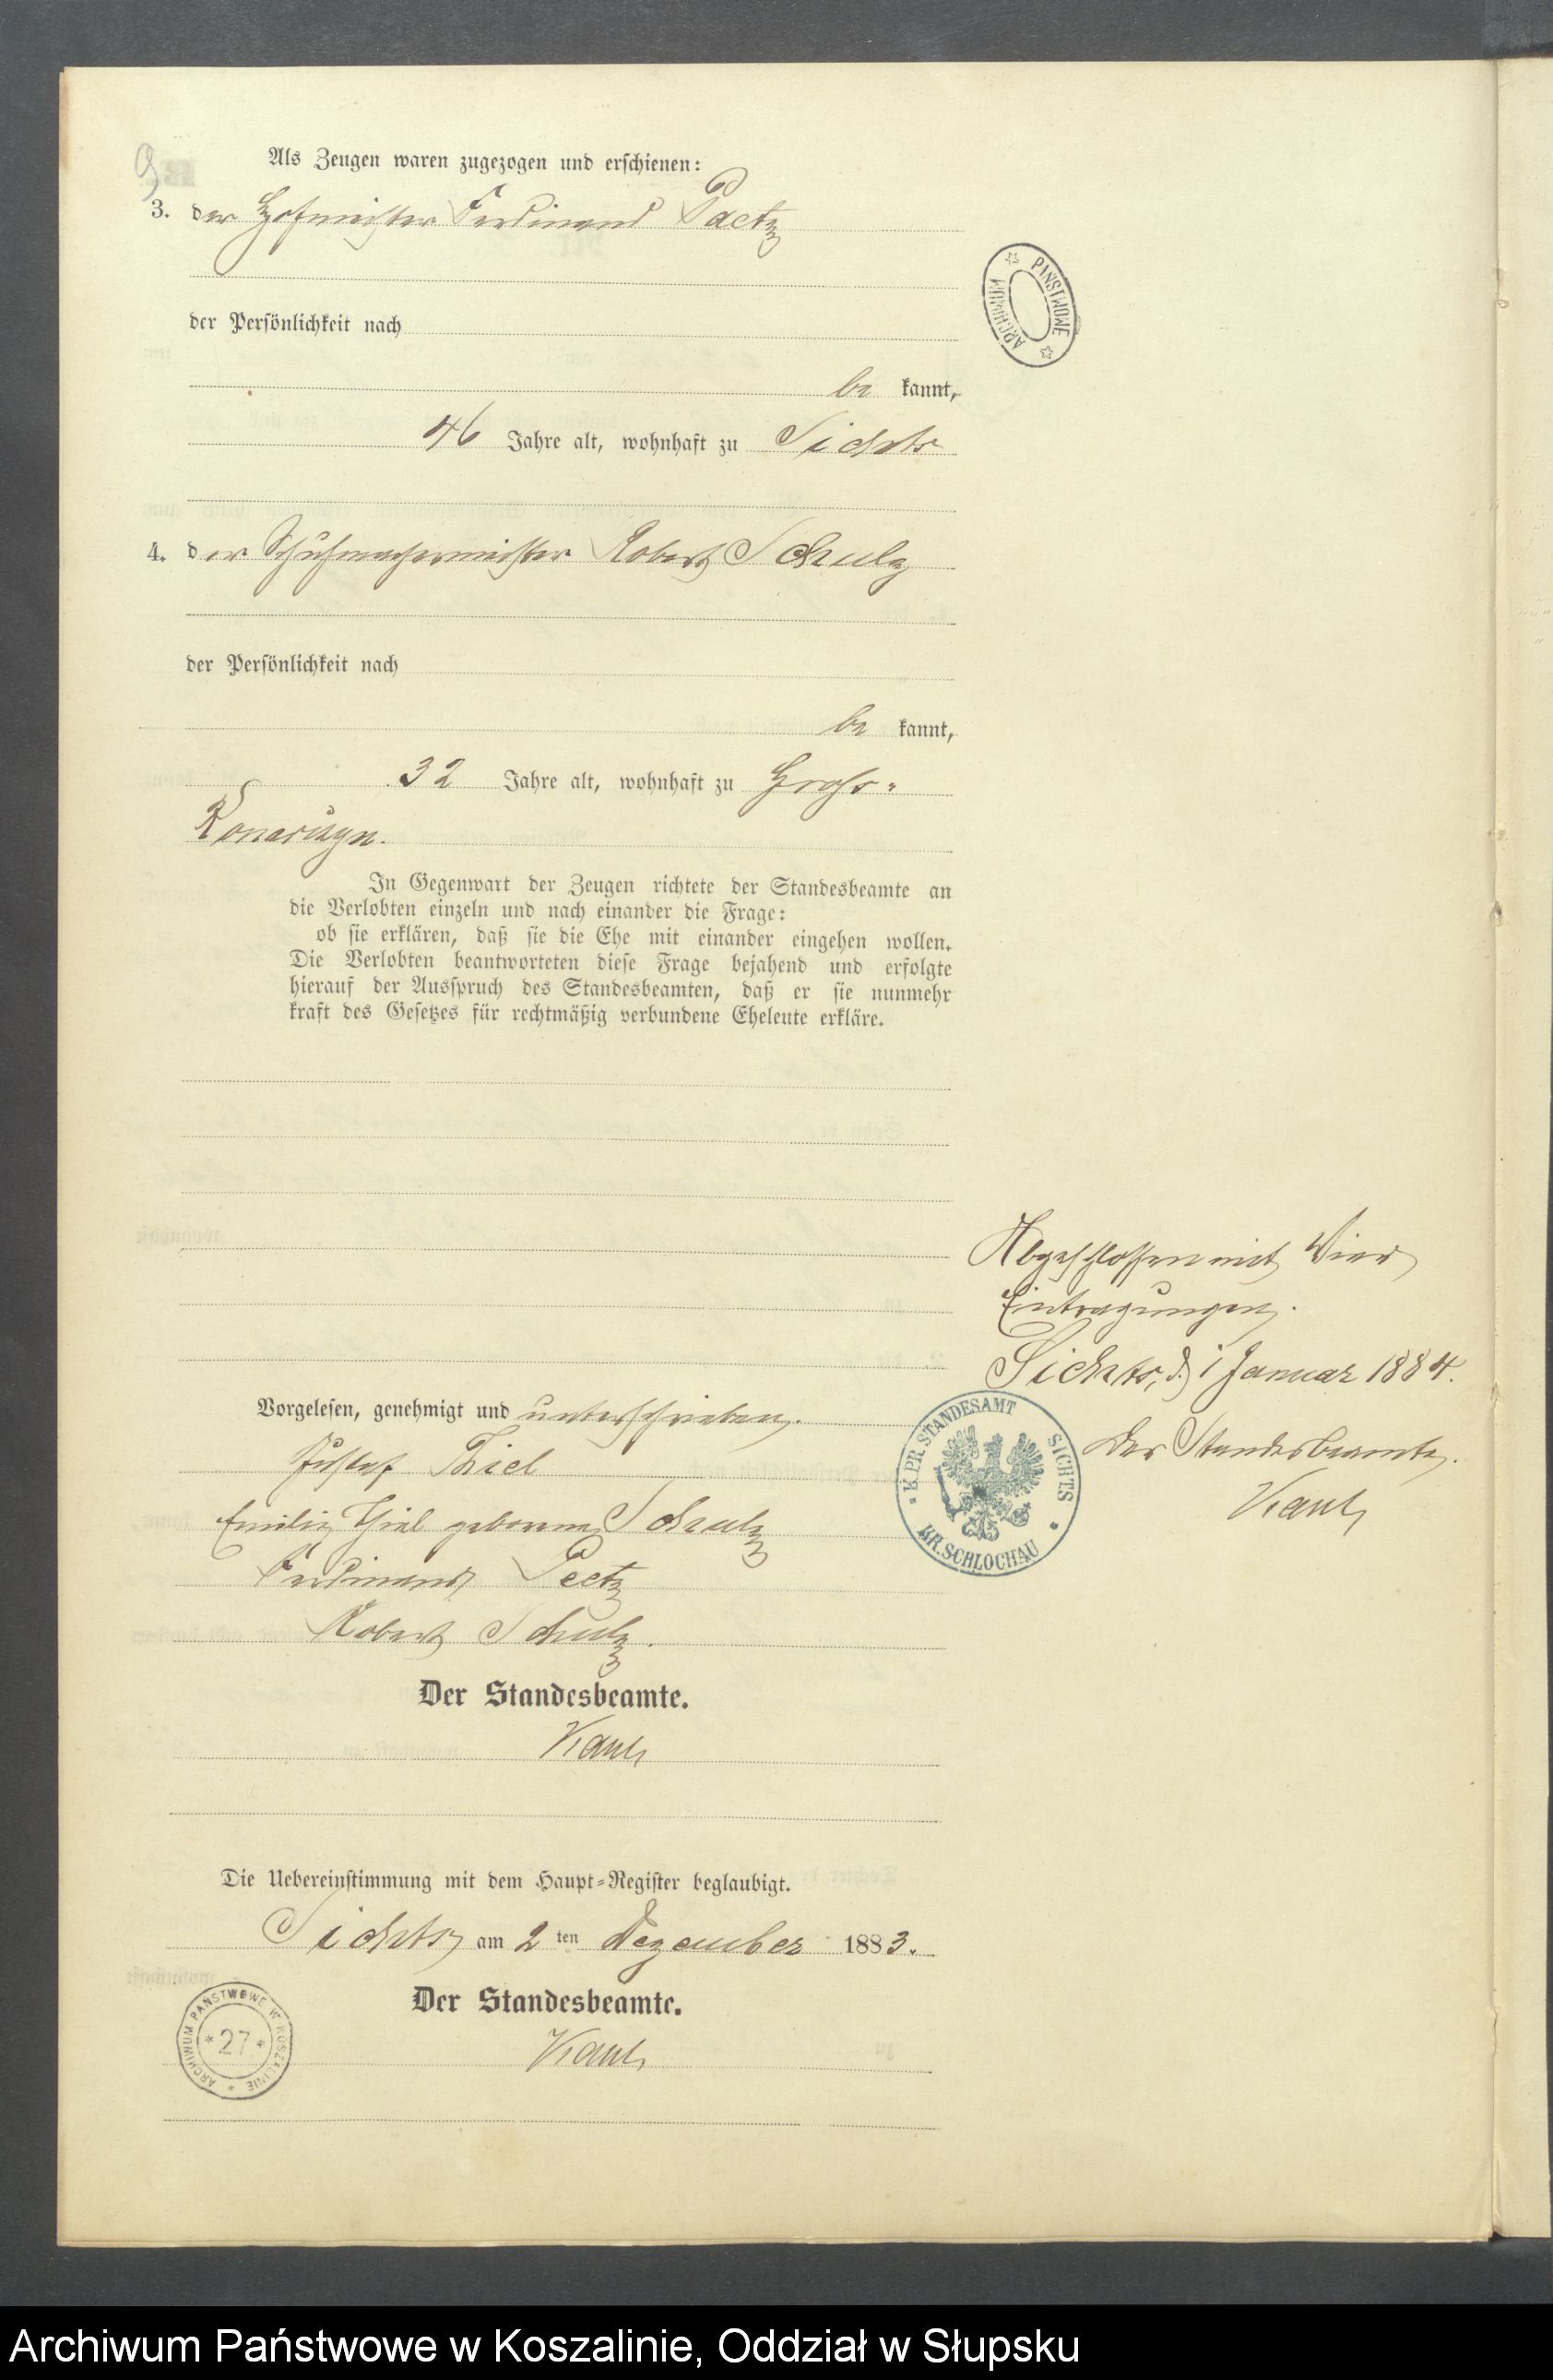 9
Als Zeugen waren zugezogen und erschienen:
3. der Hofmeister Ferdinand Paetz
der Persönlichkeit nach
be kannt,
46 Jahre alt, wohnhaft zu Sichts
4. der Schuhmachermeister Robert Schulz
der Persönlichkeit nach
be kannt,
32 Jahre alt, wohnhaft zu Groß-
Konarczyn.
In Gegenwart der Zeugen richtete der Standesbeamte an
die Verlobten einzeln und nach einander die Frage:
ob sie erklären, daß sie die Ehe mit einander eingehen wollen.
Die Verlobten beantworteten diese Frage bejahend und erfolgte
hierauf der Ausspruch des Standesbeamten, daß er sie nunmehr
kraft des Gesetzes für rechtmäßig verbundene Eheleute erkläre.
Vorgelesen, genehmigt und unterschrieben.
Gustaf Thiel
Emilie Thiel geborene Schulz
Ferdinand Peetz
Robert Schulz.
Der Standesbeamte.
Die Uebereinstimmung mit dem Haupt-Register beglaubigt.
Sichts am 2 ten Dezember 1883.
Der Standesbeamte.
Abgeschlossen mit Vier
Eintragungen.
Sichts, d. 1 Januar 1884.
Der Standesbeamte.
K. PR. STANDESAMT SICHTS
KR. SCHLOCHAU
ARCHIWUM PAŃSTWOWE
ARCHIWUM PAŃSTWOWE W KOSZALINIE
27
Archiwum Państwowe w Koszalinie, Oddział w Słupsku